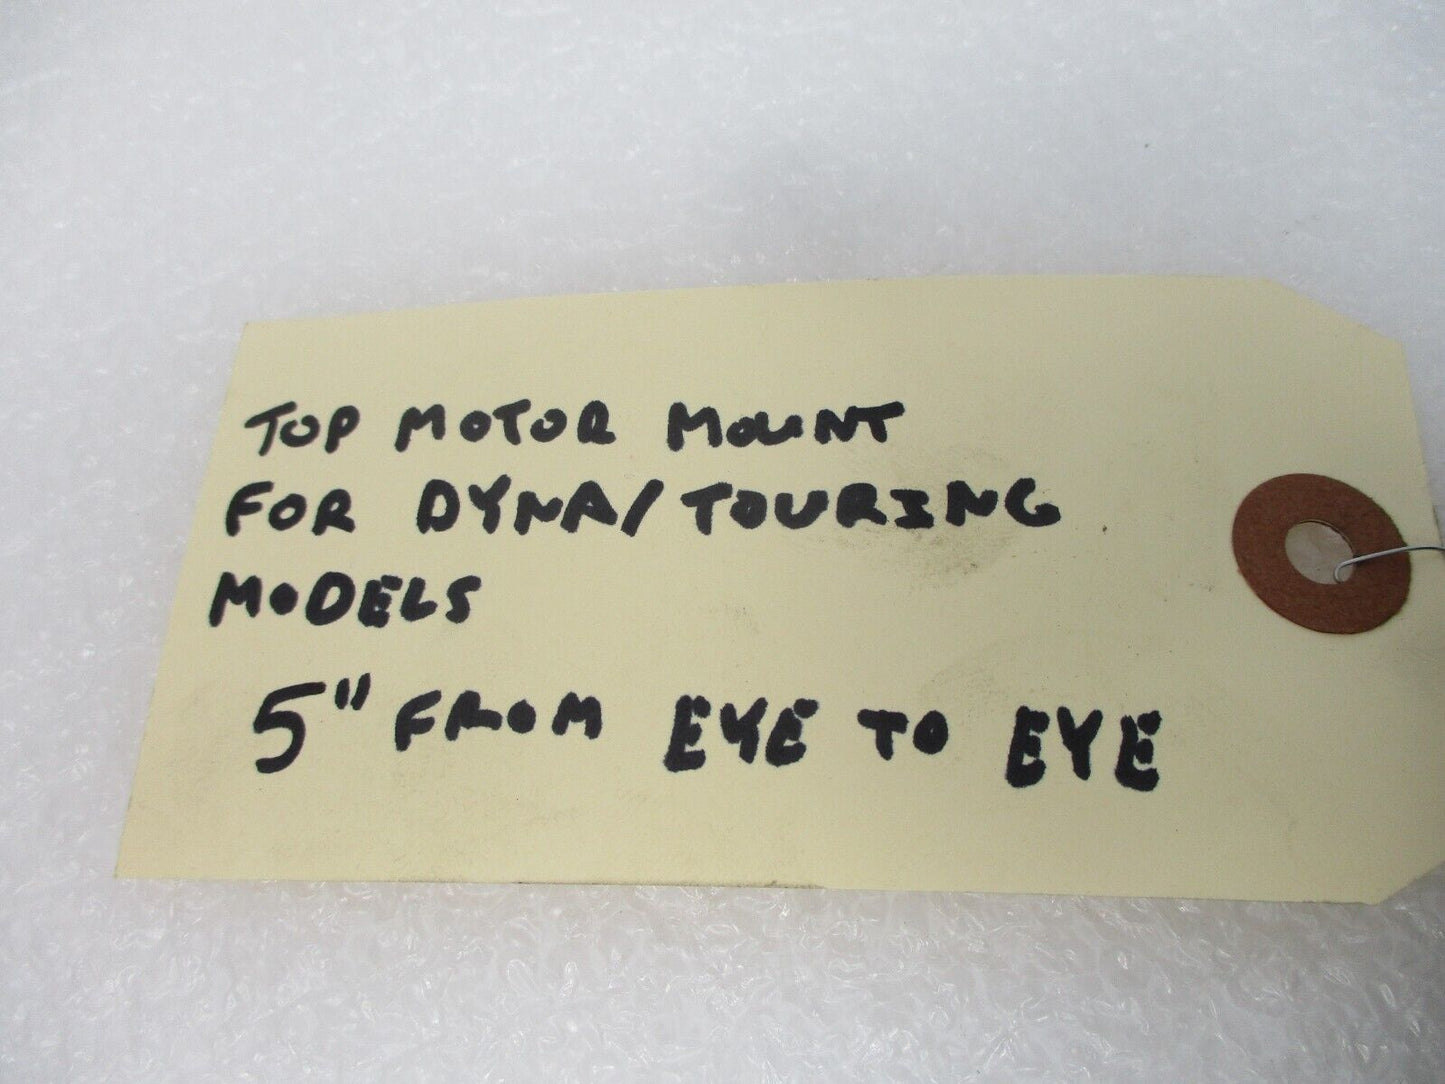 TOP MOTOR MOUNT
FOR DYNA/TOURING
MODELS
5" FROM EYE TO EYE